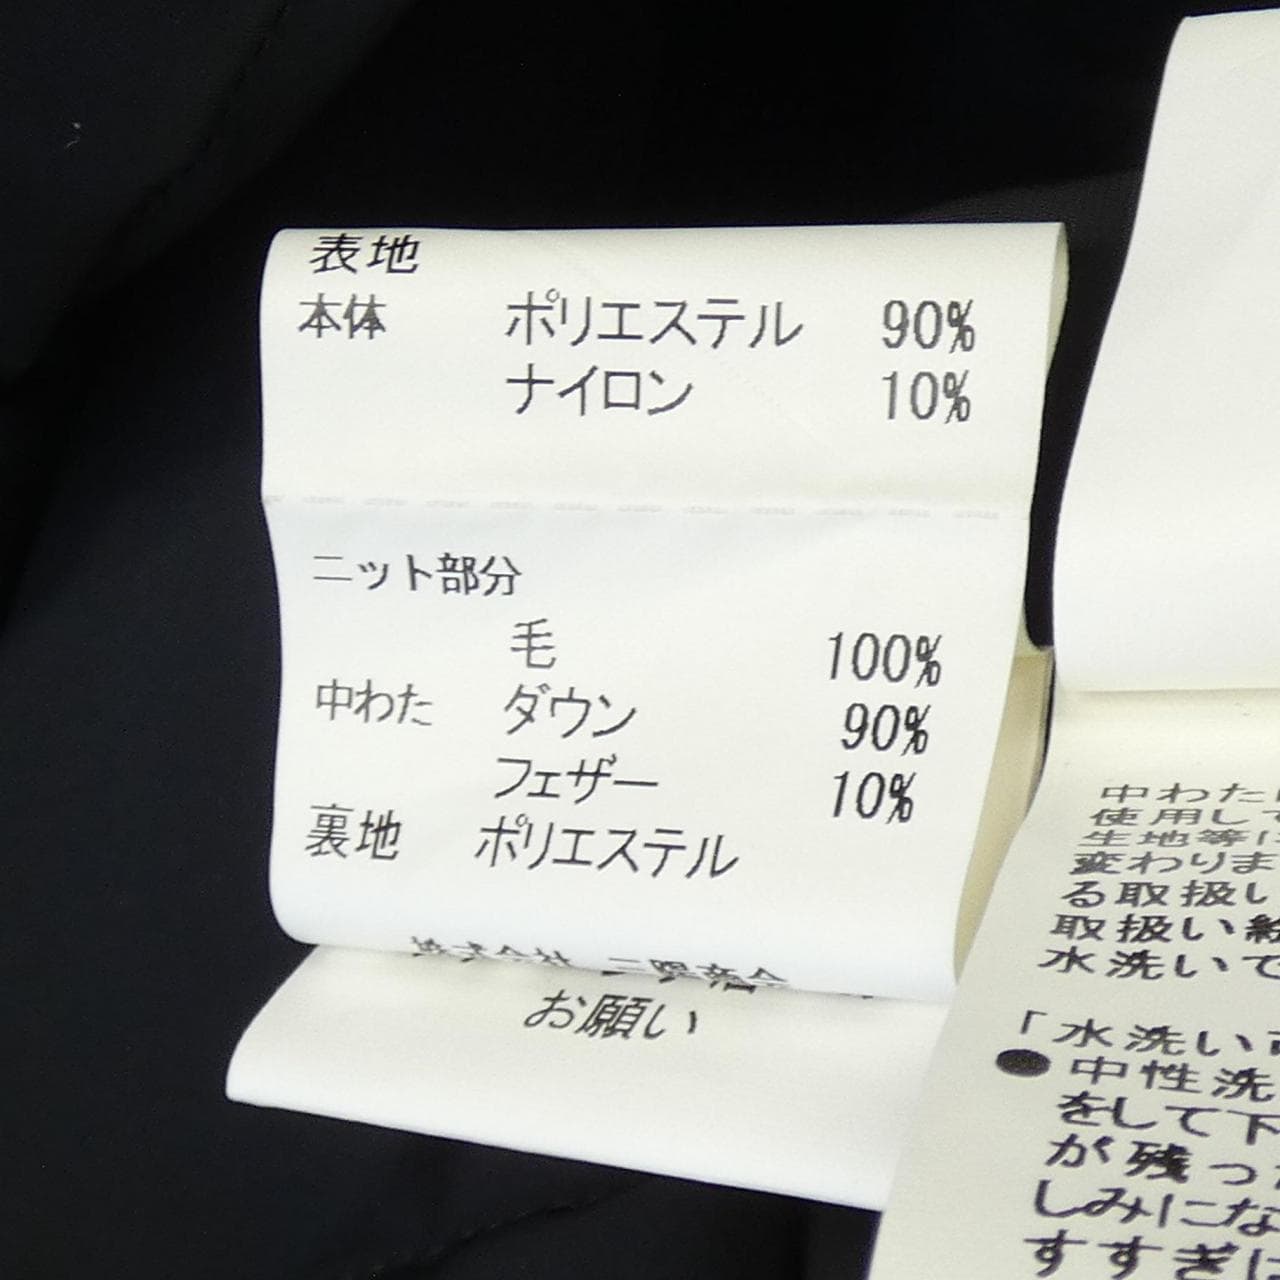 表地
本体 ポリエステル 90%
ナイロン 10%
ニット部分
毛 100%
中わた ダウン 90%
フェザー 10%
裏地 ポリエステル
株式会社 三陽商会
お願い
中わた
使用して
生地等に
変わりま
る取扱い
取扱い絵
水洗いで
「水洗い可
●中性洗
をして下
が残った
しみにな
すすぎは